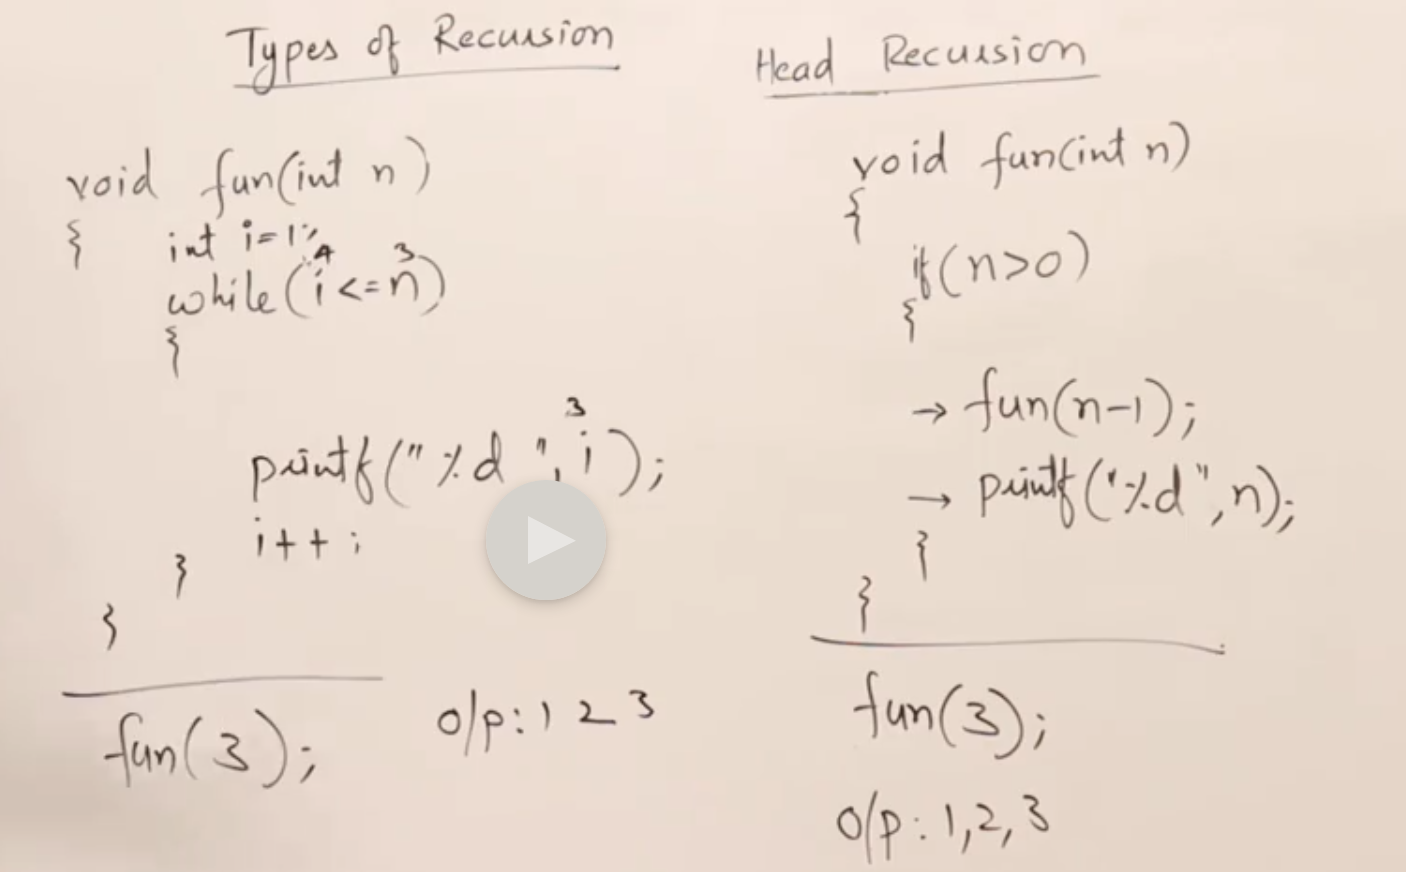 Types of Recursion
void fun(int n)
{
int i=1;
4 3
while(i<=n)
{
3
printf("%d ",i);
i++;
}
}
fun(3);
o/p: 1 2 3
Head Recursion
void fun(int n)
{
if(n>0)
{
→ fun(n-1);
→ printf("%d",n);
}
}
fun(3);
o/p: 1,2,3